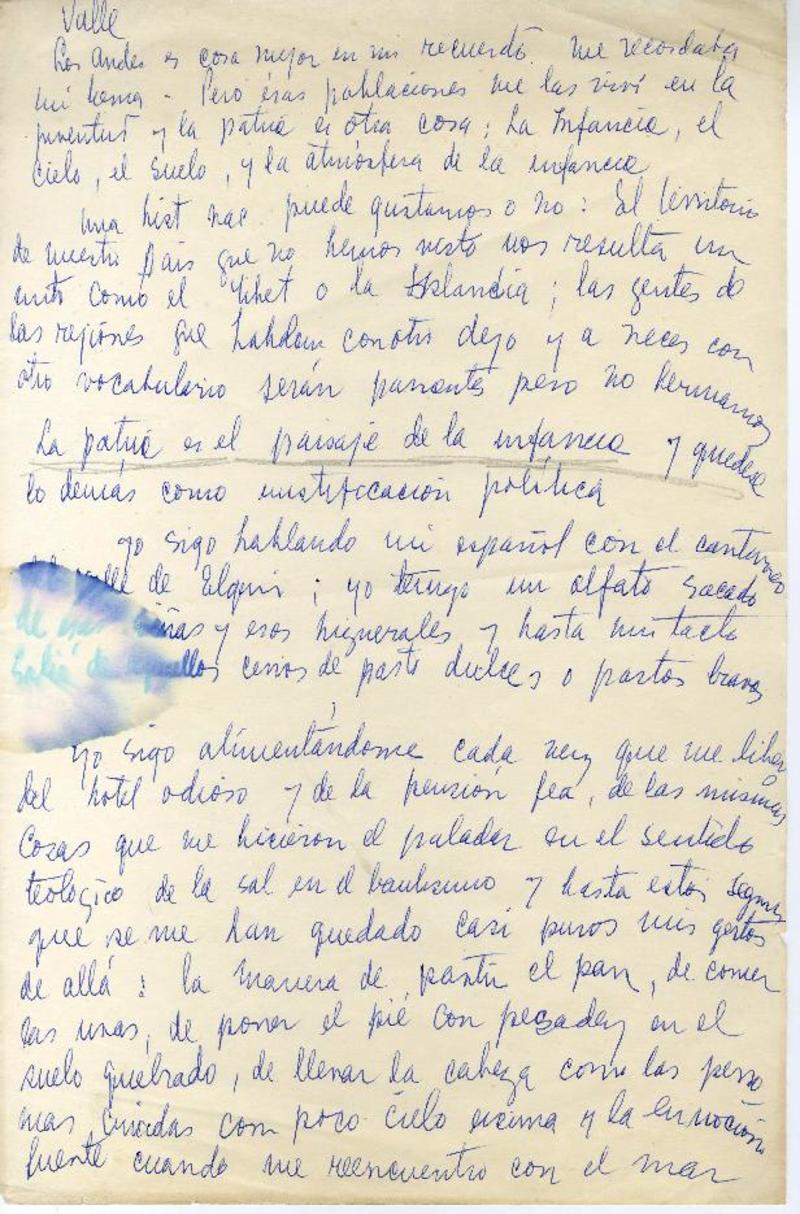 Valle
Los Andes es cosa mejor en mi recuerdo. me recordaba
mi tierra - Pero ésas poblaciones me las viví en la
juventud y la patria es otra cosa: La Infancia, el
cielo, el suelo, y la atmósfera de la infancia
una hist nac puede gustarnos o no: El territorio
de nuestro País que no hemos visto nos resulta un
mito como el Tibet o la Islandia; las gentes de
las rejiones que hablan con otro dejo y a veces con
otro vocabulario serán parientes pero no hermanos
La patria es el paisaje de la infancia y quédese
lo demás como mistificación política
yo sigo hablando mi español con el canturreo
del valle de Elqui; yo tengo un olfato sacado
de esas viñas y esos higuerales y hasta mi tacto
salió de aquellos cerros de pasto dulces o pastos bravos
yo sigo alimentándome cada vez que me libero
del hotel odioso y de la pensión fea, de las mismas
cosas que me hicieron el paladar en el sentido
teológico de la sal en el bautismo y hasta estoy segura
que se me han quedado casi puros mis gestos
de allá: la manera de partir el pan, de comer
las uvas, de poner el pié con pesadez en el
suelo quebrado, de llevar la cabeza como las perso
nas criadas con poco cielo encima y la emoción
fuerte cuando me reencuentro con el mar